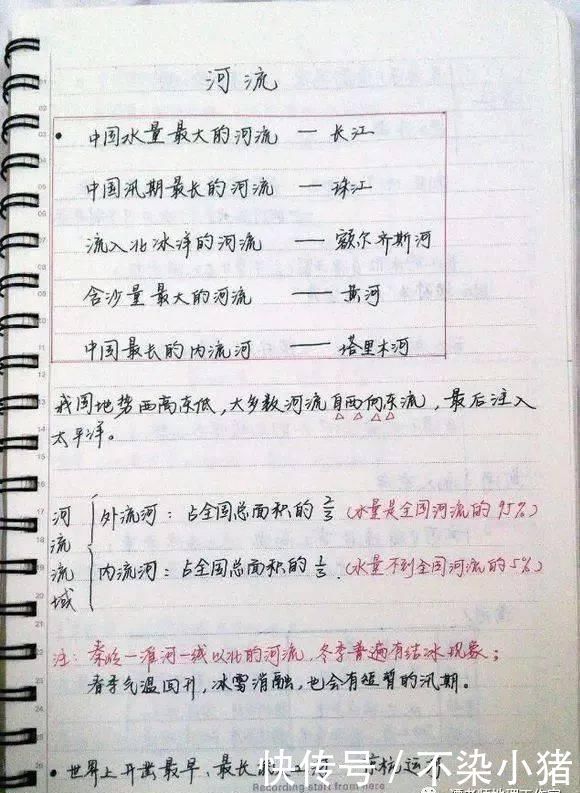 河流
• 中国水量最大的河流 — 长江
中国汛期最长的河流 — 珠江
流入北冰洋的河流 —— 额尔齐斯河
含沙量最大的河流 —— 黄河
中国最长的内流河 —— 塔里木河
我国地势西高东低,大多数河流自西向东流,最后注入
太平洋。
河流流域
外流河:占全国总面积的 2/3 (水量是全国河流的95%)
内流河:占全国总面积的 1/3 .(水量不到全国河流的5%)
注:秦岭一淮河一线以北的河流,冬季普遍有结冰现象;
春季气温回升,冰雪消融,也会有短暂的汛期。
• 世界上开凿最早、最长
快传号 / 不染小猪
Recording start from here